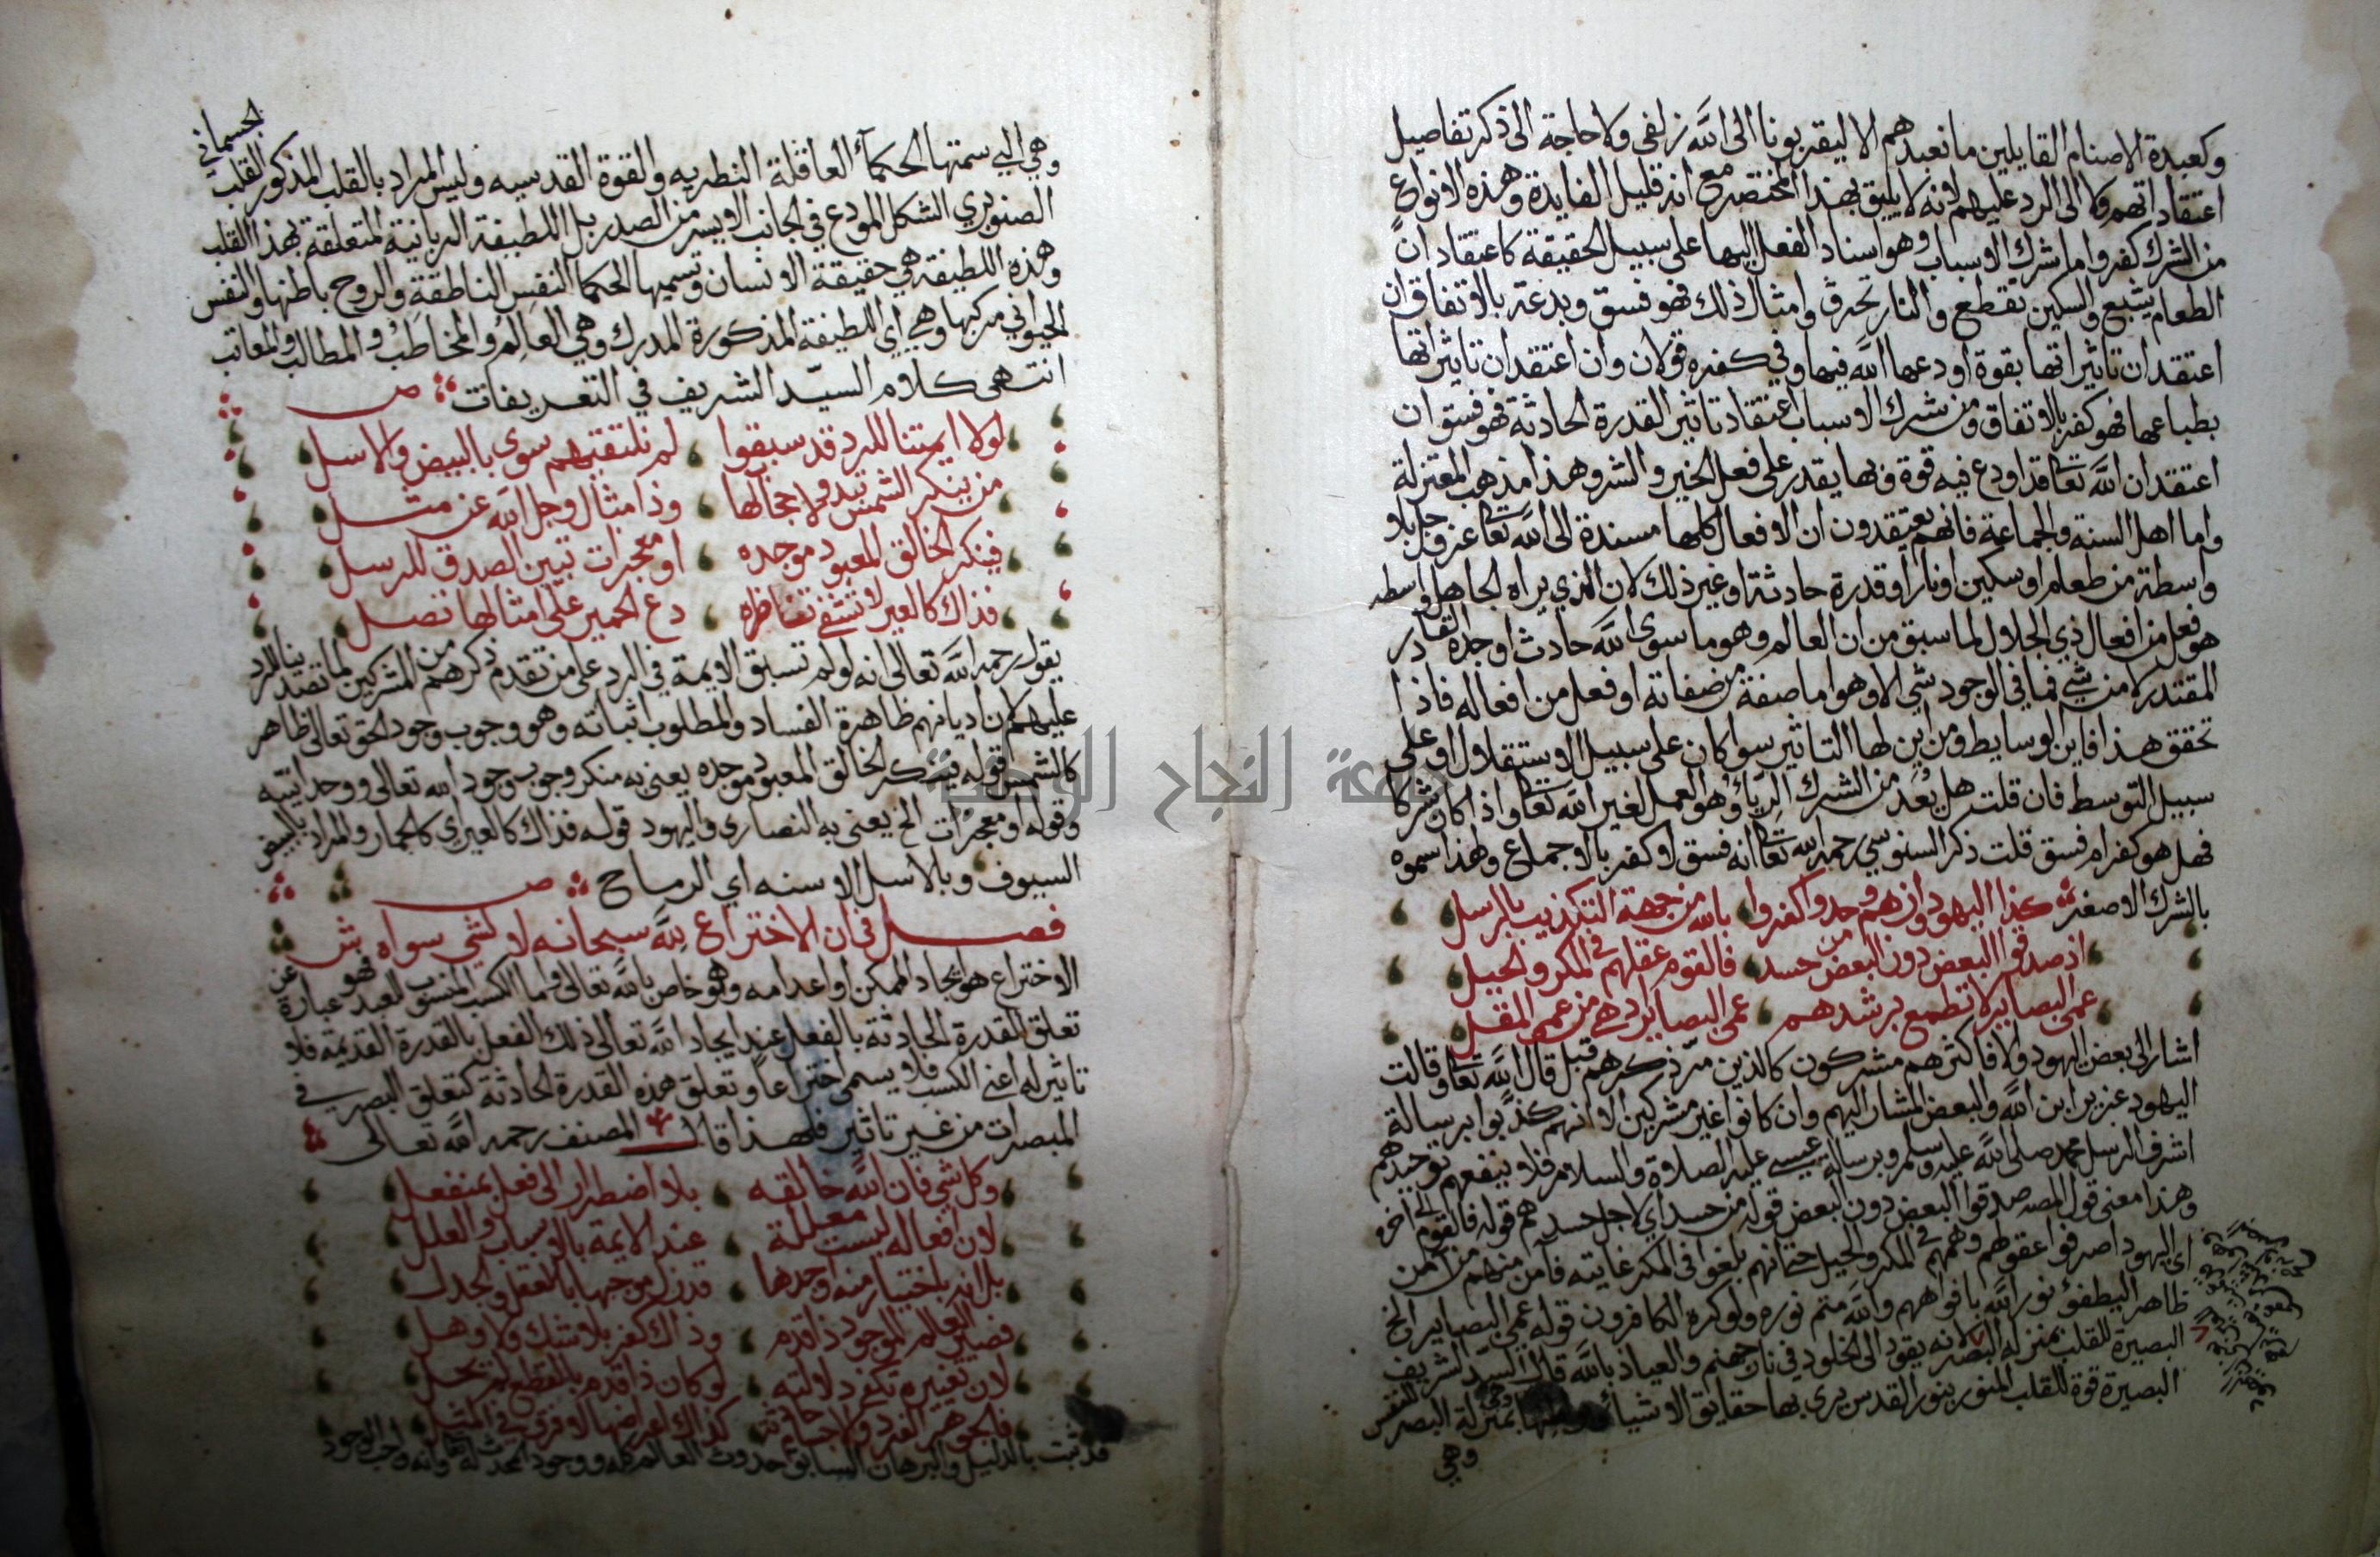 وكعبدة الاصنام القايلين ما نعبدهم الا ليقربونا الى الله زلفى ولا حاجة الى ذكر تفاصيل
اعتقاداتهم ولا الى الرد عليهم لانه لا يليق بهذا المختصر مع انه قليل الفايدة وهذه الانواع
من الشرك كفر واما شرك الاسباب وهو اسناد الفعل اليها على سبيل الحقيقة كاعتقاد ان
الطعام يشبع والسكين تقطع والنار تحرق وامثال ذلك فهو فسق وبدعة بالاتفاق ان
اعتقد ان تاثيراتها بقوة اودعها الله فيها وفي كفره قولان وان اعتقد ان تاثيراتها
بطباعها فهو كفر بالاتفاق ومن شرك الاسباب اعتقاد تاثير القدرة الحادثة فهو فسق ان
اعتقد ان الله تعا قد اودع فيه قوة وبها يقدر على فعل الخير والشر وهذا مذهب المعتزلة
واما اهل السنة والجماعة فانهم يعتقدون ان الافعال كلها مسندة الى الله تعا عز وجل بلا
واسطة من طعام او سكين او نار او قدرة حادثة او غير ذلك لان الذي يراه الجاهل واسطه
هو فعل من افعال ذي الجلال لما سبق من ان العالم وهو ما سوى الله حادث اوجده القادر
المقتدر لا من شي فما في الوجود شي الا وهو اما صفة من صفاته او فعل من افعاله فاذا
تحقق هذا فاين الوسايط ومن اين لها التاثير سوا كان على سبيل الاستقلال او على
سبيل التوسط فان قلت هل يُعد من الشرك الرياء وهو العمل لغير الله تعا واذا كان شركا
فهل هو كفر ام فسق قلت ذكر السنوسي رحمه الله تعا انه فسق لا كفر بالاجماع ولهذا سموه
بالشرك الاصغر كذا اليهود وان هم وحدوا كفروا بالله من جهة التكذيب بالرسل
اذ صدقوا البعض دون البعض من حسد فالقوم عقلهم في المكر والحيل
عمي البصاير لا تطمع برشدهم عمي البصاير ادهى من عمي المقل
اشار الى بعض اليهود والا فاكثرهم مشركون كالذين مرّ ذكرهم قبل قال الله تعا وقالت
اليهود عزير ابن الله والبعض المشار اليهم وان كانوا غير مشركين الا انهم كذبوا برسالة
اشرف الرسل محمد صلى الله عليه وسلم وبرسالة عيسى عليه الصلاة والسلام فلا ينفعهم توحيدهم
وهذا معنى قول المصـ صدقوا البعض دون البعض قوله من حسد اي لاجل حسدهم قوله فالقوم الى اخره
اي اليهود اصرفوا عقولهم وهمهم في المكر والحيل حتى انهم بلغوا في المكر غايته فامن منهم من امن
ظاهرا ليطفؤ نور الله بافواههم والله متم نوره ولو كره الكافرون قوله عمي البصاير الخ
البصيرة للقلب بمنزلة البصر لانه يقود الى الخلود في نار جهنم والعياذ بالله قال السيد الشريف
البصيرة قوة للقلب المنور بنور القدس يرى بها حقايق الاشياء بمنزلة البصر للنفس
وهي
وهي التي سمتها الحكماء العاقلة النظريه والقوة القدسيه وليس المراد بالقلب المذكور القلب الجسماني
الصنوبري الشكل المودع في الجانب الايسر من الصدر بل اللطيفة الربانية المتعلقة بهذا القلب
وهذه اللطيفة هي حقيقة الانسان وتسميها الحكما النفس الناطقة والروح باطنها والنفس
الحيواني مركبها وهي اي اللطيفة المذكورة المدرك وهي العالِم والمخاطَب والمطالب والمعاتب
انتهى كلام السيّد الشريف في التعريفات ص
لولا ايمتنا للرد قد سبقوا لم نلتقيهم سوى بالبيض والاسل
من ينكر الشمس تبدو لا حجالها وذا مثال وجل الله عن مثل
فينكر الخالق المعبود موجده او معجزات تبين الصدق للرسل
فذاك كالعير لا تشفي تناظره دع الحمير على امثالها تصل
يقول رحمه الله تعالى انه لو لم تسبق الايمة في الرد على من تقدم ذكرهم من المشركين لما تصدينا للرد
عليهم لان اديانهم ظاهرة الفساد والمطلوب اثباته وهو وجوب وجود الحق تعالى ظاهر
كالشمس قوله فينكر الخالق المعبود موجده يعني به منكر وجوب وجود الله تعالى ووحدانيته
وقوله او معجزات الخ يعني به النصارى واليهود قوله فذاك كالعير اي كالحمار والمراد بالبيض
السيوف وبالاسل الاسنه اي الرماح ص
فصل في ان الاختراع لله سبحانه لا لشي سواه ش
الاختراع هو ايجاد الممكن او اعدامه وهو خاص بالله تعالى واما الكسب المنسوب للعبد فهو عبارة عن
تعلق القدرة الحادثة بالفعل عند ايجاد الله تعالى ذلك الفعل بالقدرة القديمة فلا
تاثير له اعني الكسب فلا يسمى اختراعا وتعلق هذه القدرة الحادثة كتعلق البصر في
المبصرات من غير تاثير فلهذا قال المصنف رحمه الله تعالى
وكل شي فان الله خالقه بلا اضطرار الى فعل بمنفعل
لان افعاله ليست معللة عند الايمة بالاسباب والعلل
بل انه باختيار منه اوجدها
فصير العالم الموجود ذا قدم وذاك كفر بلا شك ولا وهل
لان تغييره تكفي دلالته لو كان ذا قدم بالقطع لم يحل
فالجوهر الفرد والاجسام حادثة كذاك اعراضها لا فرق في المثل
قد ثبت بالدليل والبرهان السابق حدوث العالم كله ووجود المحدث له تعا وانه واجب الوجود
جامعة النجاح الوطنية